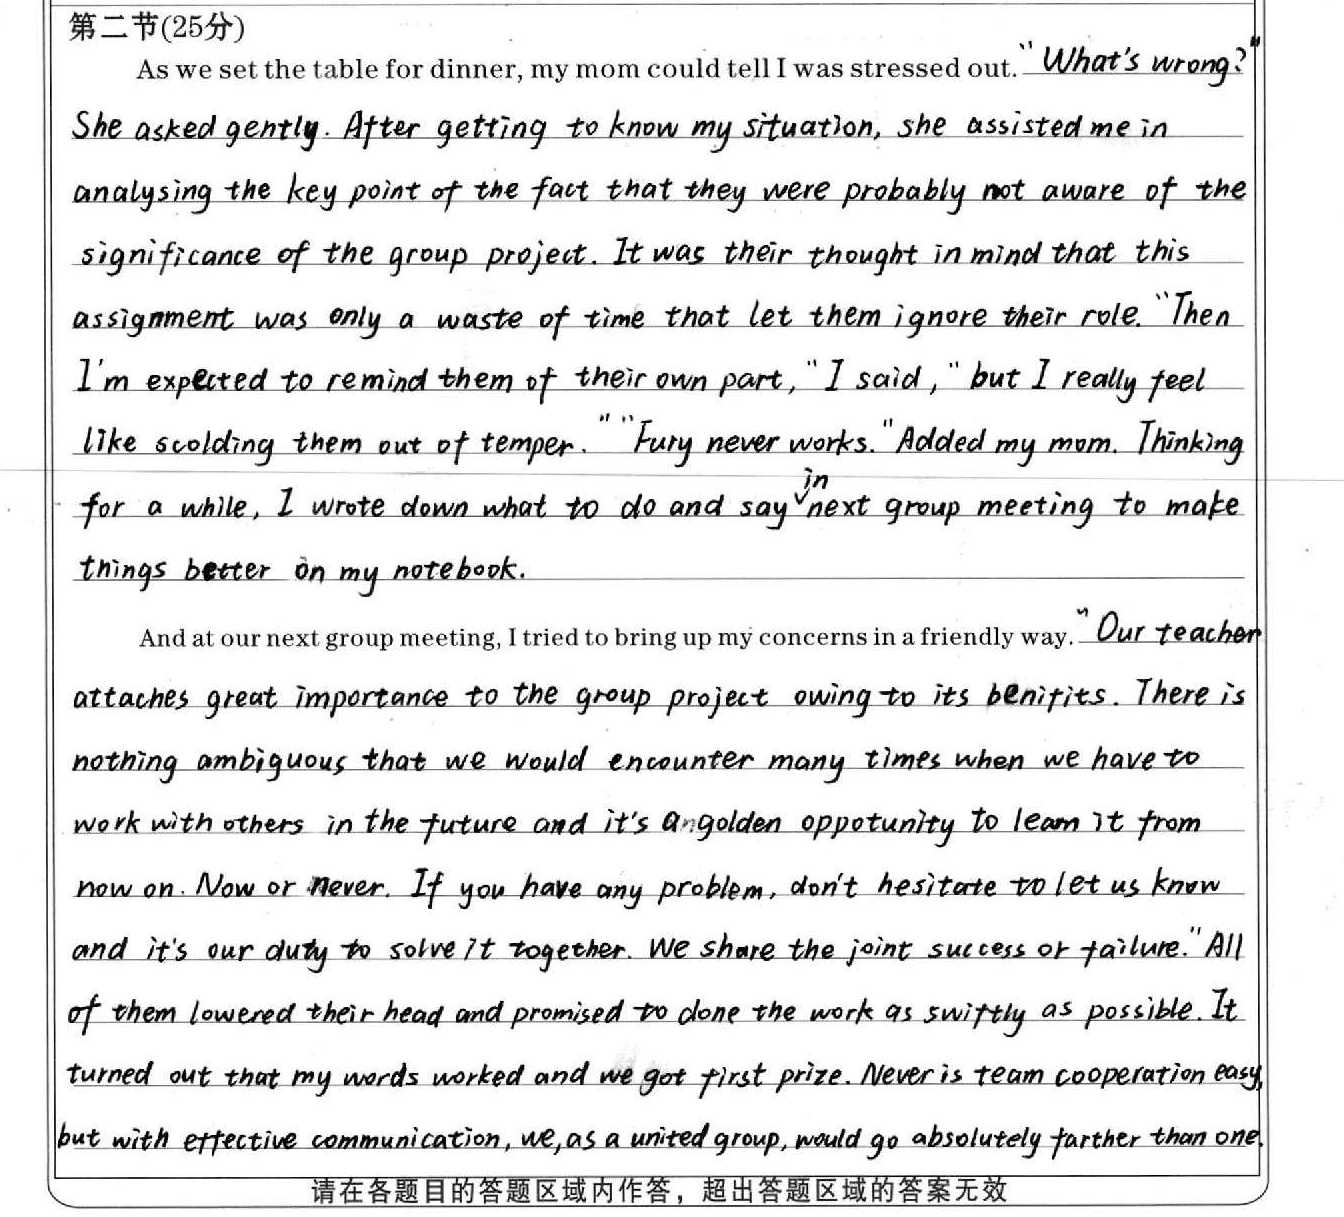 第二节(25分)
As we set the table for dinner, my mom could tell I was stressed out. "What's wrong?"
She asked gently. After getting to know my situation, she assisted me in
analysing the key point of the fact that they were probably not aware of the
significance of the group project. It was their thought in mind that this
assignment was only a waste of time that let them ignore their role. "Then
I'm expected to remind them of their own part," I said, "but I really feel
like scolding them out of temper." "Fury never works." Added my mom. Thinking
for a while, I wrote down what to do and say in next group meeting to make
things better on my notebook.
And at our next group meeting, I tried to bring up my concerns in a friendly way. "Our teacher
attaches great importance to the group project owing to its benifits. There is
nothing ambiguous that we would encounter many times when we have to
work with others in the future and it's a golden oppotunity to learn it from
now on. Now or never. If you have any problem, don't hesitate to let us know
and it's our duty to solve it together. We share the joint success or failure." All
of them lowered their head and promised to done the work as swiftly as possible. It
turned out that my words worked and we got first prize. Never is team cooperation easy,
but with effective communication, we, as a united group, would go absolutely farther than one.
请在各题目的答题区域内作答，超出答题区域的答案无效